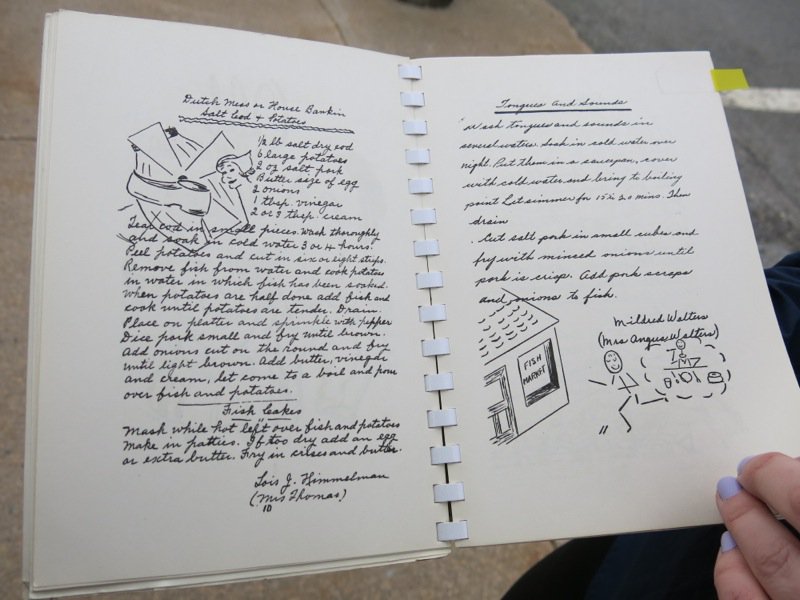 Dutch Mess or House Bankin
Salt Cod & Potatoes
1/2 lb salt dry cod
6 large potatoes
2 oz salt pork
Butter size of egg
2 onions
1 tbsp. vinegar
2 or 3 tbsp. cream
Tear cod in small pieces. Wash thoroughly
and soak in cold water 3 or 4 hours.
Peel potatoes and cut in six or eight strips.
Remove fish from water and cook potatoes
in water in which fish has been soaked.
When potatoes are half done add fish and
cook until potatoes are tender. Drain.
Place on platter and sprinkle with pepper
Dice pork small and fry until brown.
Add onions cut on the round and fry
until light brown. Add butter, vinegar
and cream, let come to a boil and pour
over fish and potatoes.
Fish Cakes
Mash while hot left over fish and potatoes
Make in patties. If too dry add an egg
or extra butter. Fry in crises and butter.
Lois J. Himmelman
(Mrs Thomas)
10
Tongues And Sounds
Wash tongues and sounds in
several waters. Soak in cold water over
night. Put them in a saucepan, cover
with cold water and bring to boiling
point Let simmer for 15 to 20 mins. Then
drain
. Cut salt pork in small cubes and
fry with minsed onions until
pork is crisp. Add pork scraps
and onions to fish.
Mildred Walters
(Mrs Angus Walters)
FISH
MARKET
11